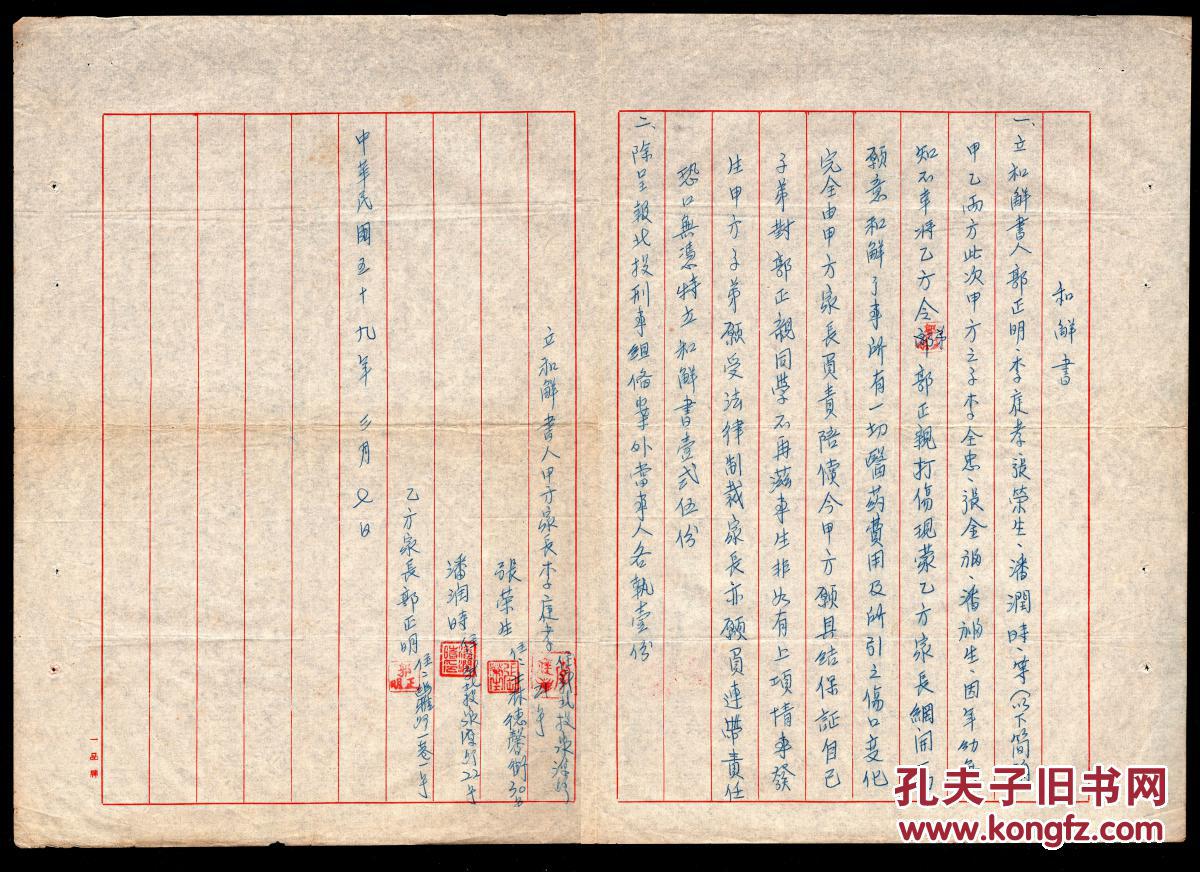 和解書
一、立和解書人郭正明、李庭孝、張榮生、潘潤時、等(以下簡為
甲乙兩方此次甲方之子李全忠、張金福、潘福生、因年幼無
知不幸將乙方令弟郭正親打傷現蒙乙方家長網開一面
願意和解了事所有一切醫药費用及所引之傷口变化
完全由甲方家長員責陪償今甲方願具结保証自己
子弟對郭正親同學不再滋事生非如有上項情事發
生甲方子弟願受法律制裁家長亦願員連帶責任
恐口無憑特立和解書壹式伍份
二、除呈報北投刑事组俻案外當事人各執壹份
立和解書人甲方家長李庭孝
張榮生 住士林德馨街30号
潘潤時 住北投 22号
乙方家長郭正明 住 一巷一号
中華民國五十九年三月七日
一品牌
孔夫子旧书网
www.kongfz.com